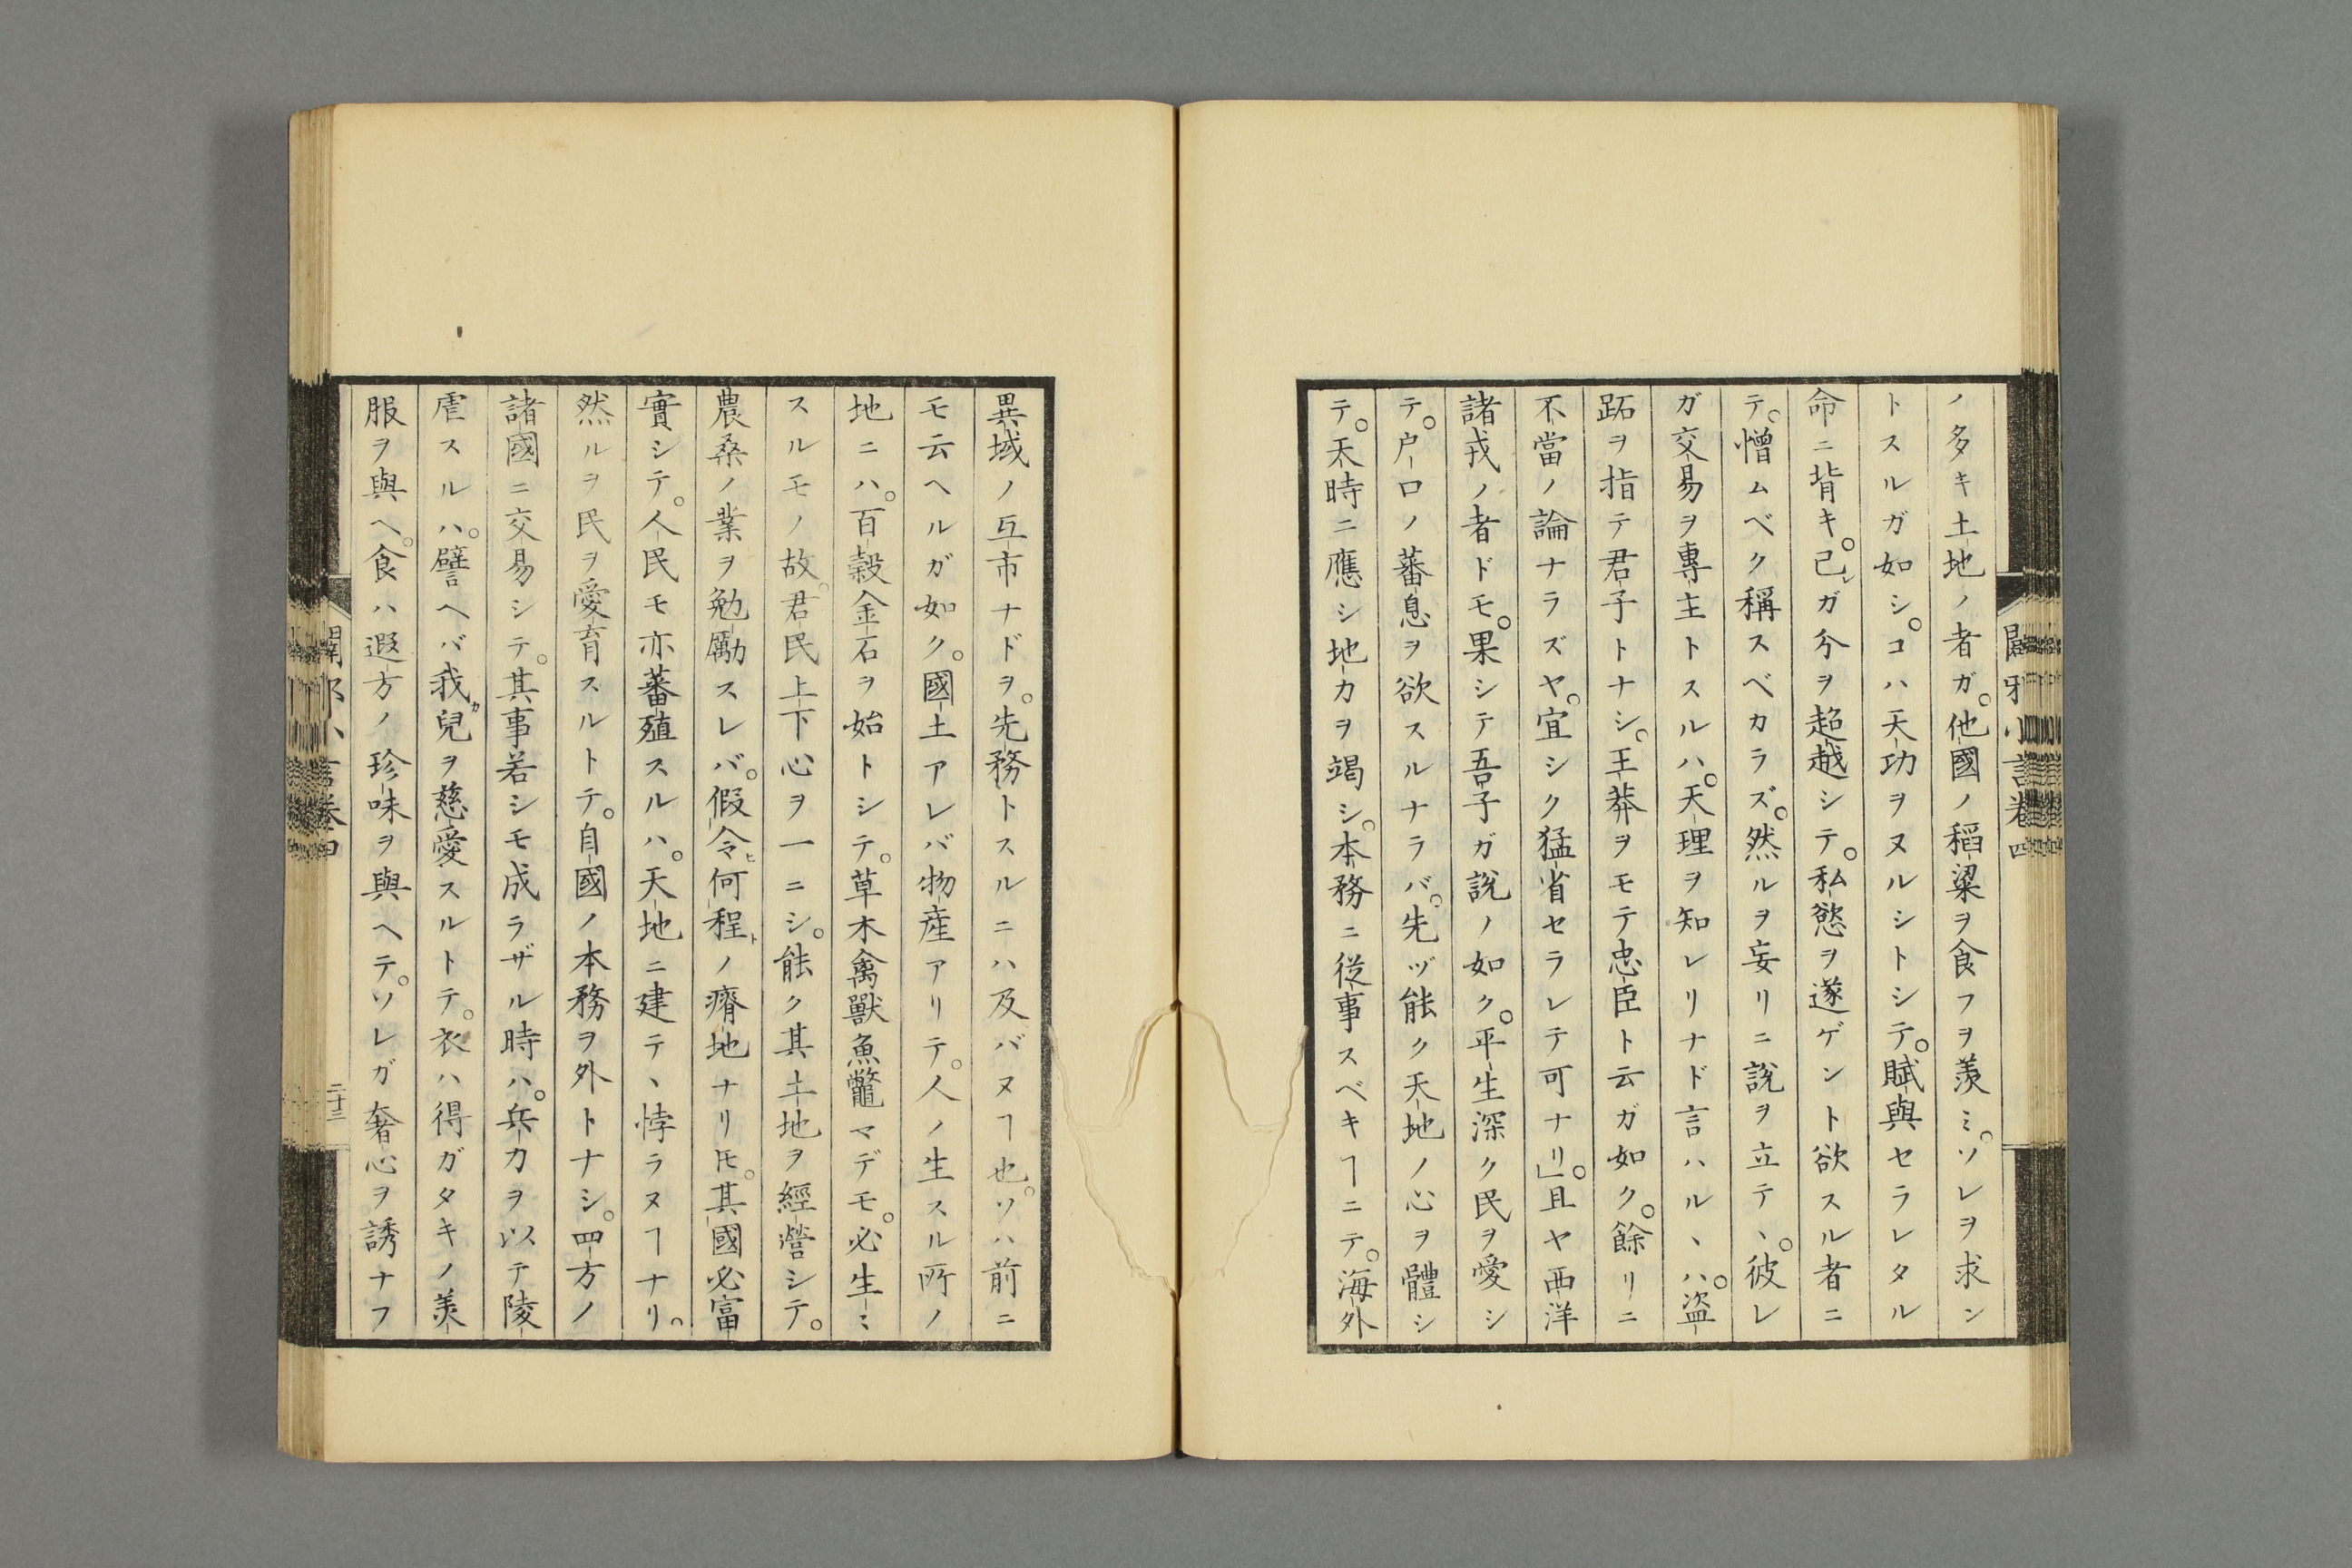 ノ多キ土地ノ者ガ。他國ノ稻粱ヲ食フヲ羨ミ。ソレヲ求ン
トスルガ如シ。コハ天功ヲヌルシトシテ。賦與セラレタル
命ニ背キ。己レガ分ヲ超越シテ。私慾ヲ遂ゲント欲スル者ニ
テ。憎ムベク稱スベカラズ。然ルヲ妄リニ說ヲ立テヽ。彼レ
ガ交易ヲ專主トスルハ。天理ヲ知レリナド言ハルヽハ。盜
跖ヲ指テ君子トナシ。王莽ヲモテ忠臣ト云ガ如ク。餘リニ
不當ノ論ナラズヤ。宜シク猛省セラレテ可ナリ」。且ヤ西洋
諸戎ノ者ドモ。果シテ吾子ガ說ノ如ク。平生深ク民ヲ愛シ
テ。戸口ノ蕃息ヲ欲スルナラバ。先ヅ能ク天地ノ心ヲ體シ
テ。天時ニ應シ地力ヲ竭シ。本務ニ從事スベキヿニテ。海外
異域ノ互市ナドヲ。先務トスルニハ及バヌヿ也。ソハ前ニ
モ云ヘルガ如ク。國土アレバ物産アリテ。人ノ生スル所ノ
地ニハ。百穀金石ヲ始トシテ。草木禽獸魚鼈マデモ。必生ミ
スルモノ故。君民上下心ヲ一ニシ。能ク其土地ヲ經營シテ。
農桑ノ業ヲ勉勵スレバ。假令ヒ何程トノ瘠地ナリトモ。其國必富
實シテ。人民モ亦蕃殖スルハ。天地ニ建テヽ悖ラヌヿナリ。
然ルヲ民ヲ愛育スルトテ。自國ノ本務ヲ外トナシ。四方ノ
諸國ニ交易シテ。其事若シモ成ラザル時ハ。兵力ヲ以テ陵
虐スルハ。譬ヘバ我カ兒ヲ慈愛スルトテ。衣ハ得ガタキノ美
服ヲ與ヘ。食ハ遐方ノ珍味ヲ與ヘテ。ソレガ奢心ヲ誘ナフ
二十三